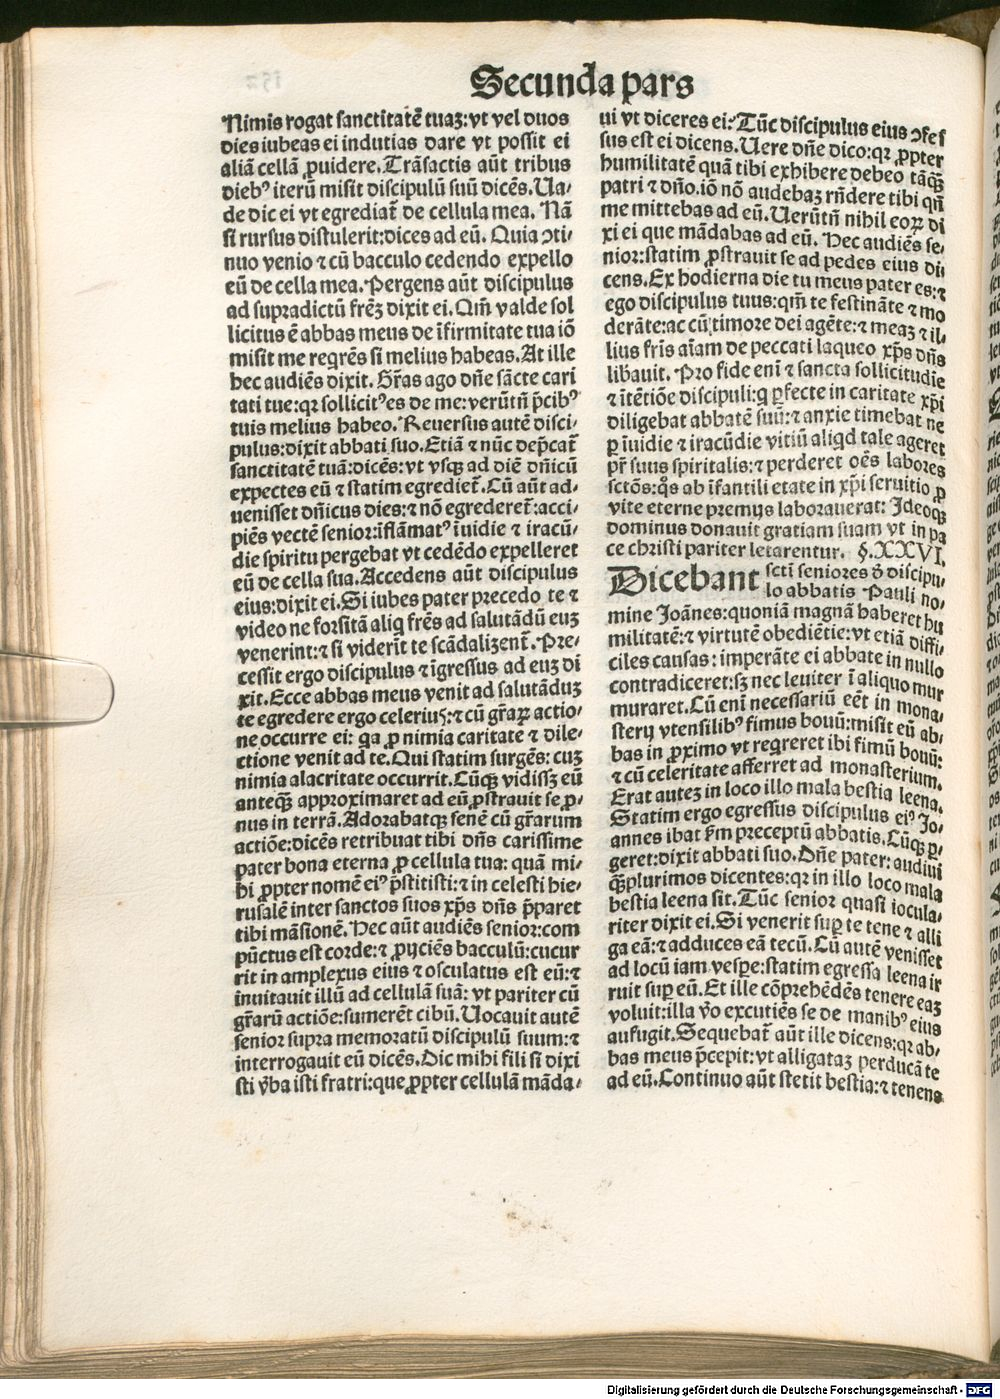 Secunda pars
Nimis rogat sanctitatē tuaꝫ: vt vel duos
dies iubeas ei indutias dare vt possit ei
aliā cellā ꝓuidere. Trāsactis aūt tribus
diebꝰ iterū misit discipulū suū dicēs. Ua-
de dic ei vt egrediat̄ de cellula mea. Nā
si rursus distulerit: dices ad eū. Quia ↄti-
nuo venio ⁊ cū bacculo cedendo expello
eū de cella mea. Pergens aūt discipulus
ad supradictū frēꝫ dixit ei. Qm̄ valde sol
licitus ē abbas meus de ī̄firmitate tua iō
misit me reqrēs si melius habeas. At ille
hec audiēs dixit. Gr̄as ago dn̄e sācte cari
tati tue: qꝛ sollicitꝰ es de me: verūtn̄ p̄cibꝰ
tuis melius habeo. Reuersus autē disci-
pulus: dixit abbati suo. Etiā ⁊ nūc dep̄cat̄
sanctitatē tuā: dicēs: vt vsqꝫ ad diē dn̄icū
expectes eū ⁊ statim egrediet̄. Cū aūt ad-
uenisset dn̄icus dies: ⁊ nō egrederet̄: acci-
piēs vectē senior: īflāmatꝰ īuidie ⁊ iracū-
die spiritu pergebat vt cedēdo expelleret
eū de cella sua. Accedens aūt discipulus
eius: dixit ei. Si iubes pater precedo te ⁊
video ne forsitā aliq frēs ad salutādū euꝫ
venerint: ⁊ si viderīt te scādalizent̄. Pre-
cessit ergo discipulus ⁊ īgressus ad euꝫ di
xit. Ecce abbas meus venit ad salutāduꝫ
te egredere ergo celeriuꝰ: ⁊ cū gr̄aꝝ actio-
ne occurre ei: qa ꝓ nimia caritate ⁊ dile-
ctione venit ad te. Qui statim surgēs: cuꝫ
nimia alacritate occurrit. Cūqꝫ vidissꝫ eū
anteqꝫ̄ approximaret ad eū ꝓstrauit se ꝓ-
nus in terrā. Adorabatqꝫ senē cū gr̄arum
actiōe: dicēs retribuat tibi dn̄s carissime
pater bona eterna ꝓ cellula tua: quā mi-
hi ꝓpter nomē eiꝰ p̄stitisti: ⁊ in celesti hie-
rusalē inter sanctos suos xp̄s dn̄s p̄paret
tibi māsionē. Hec aūt audiēs senior: com
pūctus est corde: ⁊ ꝓijciēs bacculū: cucur
rit in amplexus eius ⁊ osculatus est eū: ⁊
īnuitauit illū ad cellulā suā: vt pariter cū
gr̄arū actiōe: sumerēt cibū. Uocauit autē
senior supra memoratū discipulū suum: ⁊
interrogauit eū dicēs. Dic mihi fili si dixi
sti v̄ba isti fratri: que ꝓpter cellulā māda-
ui vt diceres ei? Tūc discipulus eius ↄfes
sus est ei dicens. Uere dn̄e dico: qꝛ ꝓpter
humilitatē quā tibi exhibere debeo tāqꝫ̄
patri ⁊ dn̄o. iō nō audebaꝫ rn̄dere tibi qn̄
me mittebas ad eū. Uerūtn̄ nihil eoꝝ di
xi ei que mādabas ad eū. Hec audiēs se-
nior: statim ꝓstrauit se ad pedes eius di
cens. Ex hodierna die tu meus pater es: ⁊
ego discipulus tuus: qm̄ te festināte ⁊ mo
derāte: ac cū timore dei agēte: ⁊ meaꝫ ⁊ il-
lius fr̄is aīam de peccati laqueo xp̄s dn̄s
libauit. Pro fide enī ⁊ sancta sollicitudie
⁊ ītētiōe discipuli: q ꝑfecte in caritate xp̄i
diligebat abbatē suū: ⁊ anxie timebat ne
ꝑ īuidie ⁊ iracūdie vitiū aliqd tale ageret
pr̄ suus spiritalis: ⁊ perderet oēs labores
sctōs: qͦs ab īfantili etate in xp̄i seruitio ꝓ
vite eterne premijs laborauerat: Ideoqꝫ
dominus donauit gratiam suam vt in pa
ce christi pariter letarentur. §. XXVI.
Dicebant sctī seniores ð discipu-
lo abbatis Pauli no-
mine Joānes: quoniā magnā haberet hu
militatē: ⁊ virtutē obediētie: vt etiā diffi-
ciles causas: imperāte ei abbate in nullo
contradiceret: sꝫ nec leuiter ī aliquo mur
muraret. Cū enī necessariū eēt in mona-
sterij vtensilibꝰ fimus bouū: misit eū ab-
bas in ꝓximo vt reqreret ibi fimū bouū:
⁊ cū celeritate afferret ad monasterium.
Erat auteꝫ in loco illo mala bestia leena.
Statim ergo egressus discipulus eiꝰ Jo-
annes ibat ẜm preceptū abbatis. Cūqꝫ ꝑ-
geret: dixit abbati suo. Dn̄e pater: audiui
qꝫ̄plurimos dicentes: qꝛ in illo loco mala
bestia leena sit. Tūc senior quasi iocula-
riter dixit ei. Si venerit suꝑ te tene ⁊ alli
ga eā: ⁊ adduces eā tecū. Cū autē venisset
ad locū iam vesꝑe: statim egressa leena ir
ruit suꝑ eū. Et ille cōprehēdēs tenere eaꝫ
voluit: illa v̄o excutiēs se de manibꝰ eius
aufugit. Sequebat̄ aūt ille dicens: qꝛ ab-
bas meus p̄cepit: vt alligataꝫ perducā te
ad eū. Continuo aūt stetit bestia: ⁊ tenens
Digitalisierung gefördert durch die Deutsche Forschungsgemeinschaft - DFG